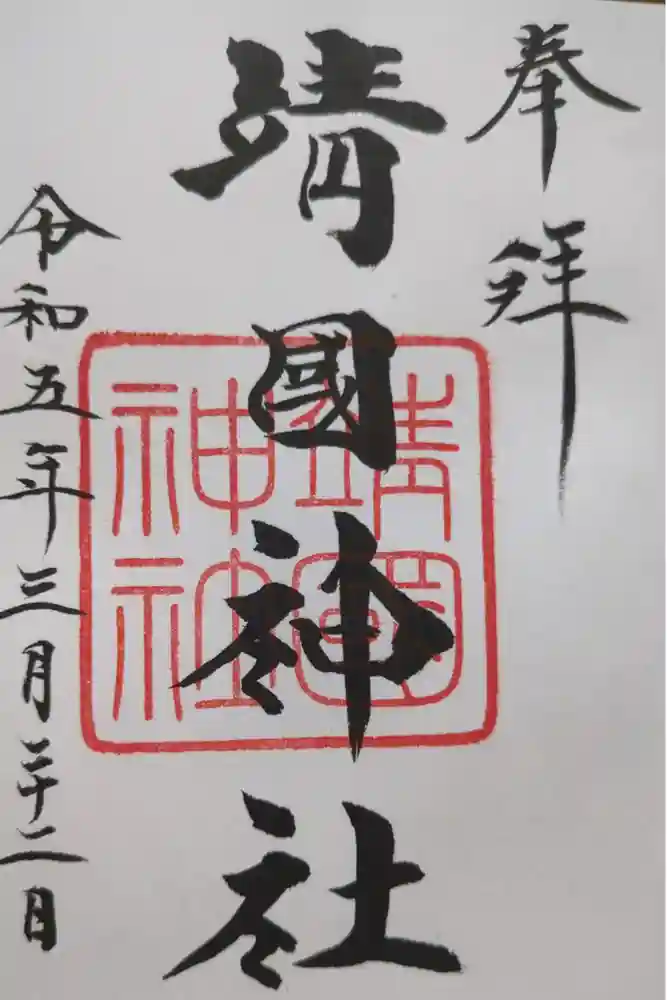 奉拝
靖國神社
靖國神社
令和五年三月二十二日